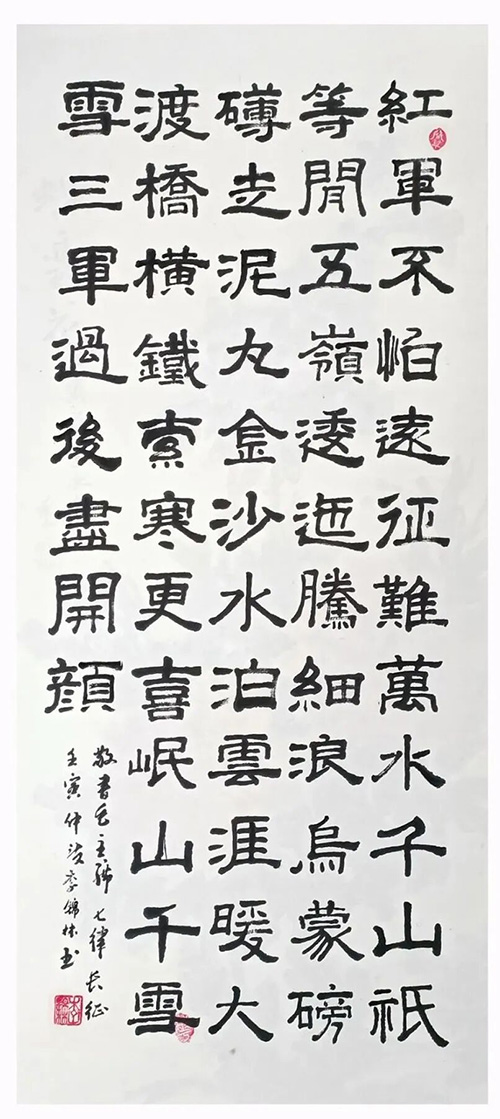 紅軍不怕遠征難萬水千山祇
等閒五嶺逶迤騰細浪烏蒙磅
礴走泥丸金沙水泊雲涯暖大
渡橋橫鐵索寒更喜岷山千雪
雪三軍過後盡開顏
敬書毛主席七律長征
壬寅仲李錦林书